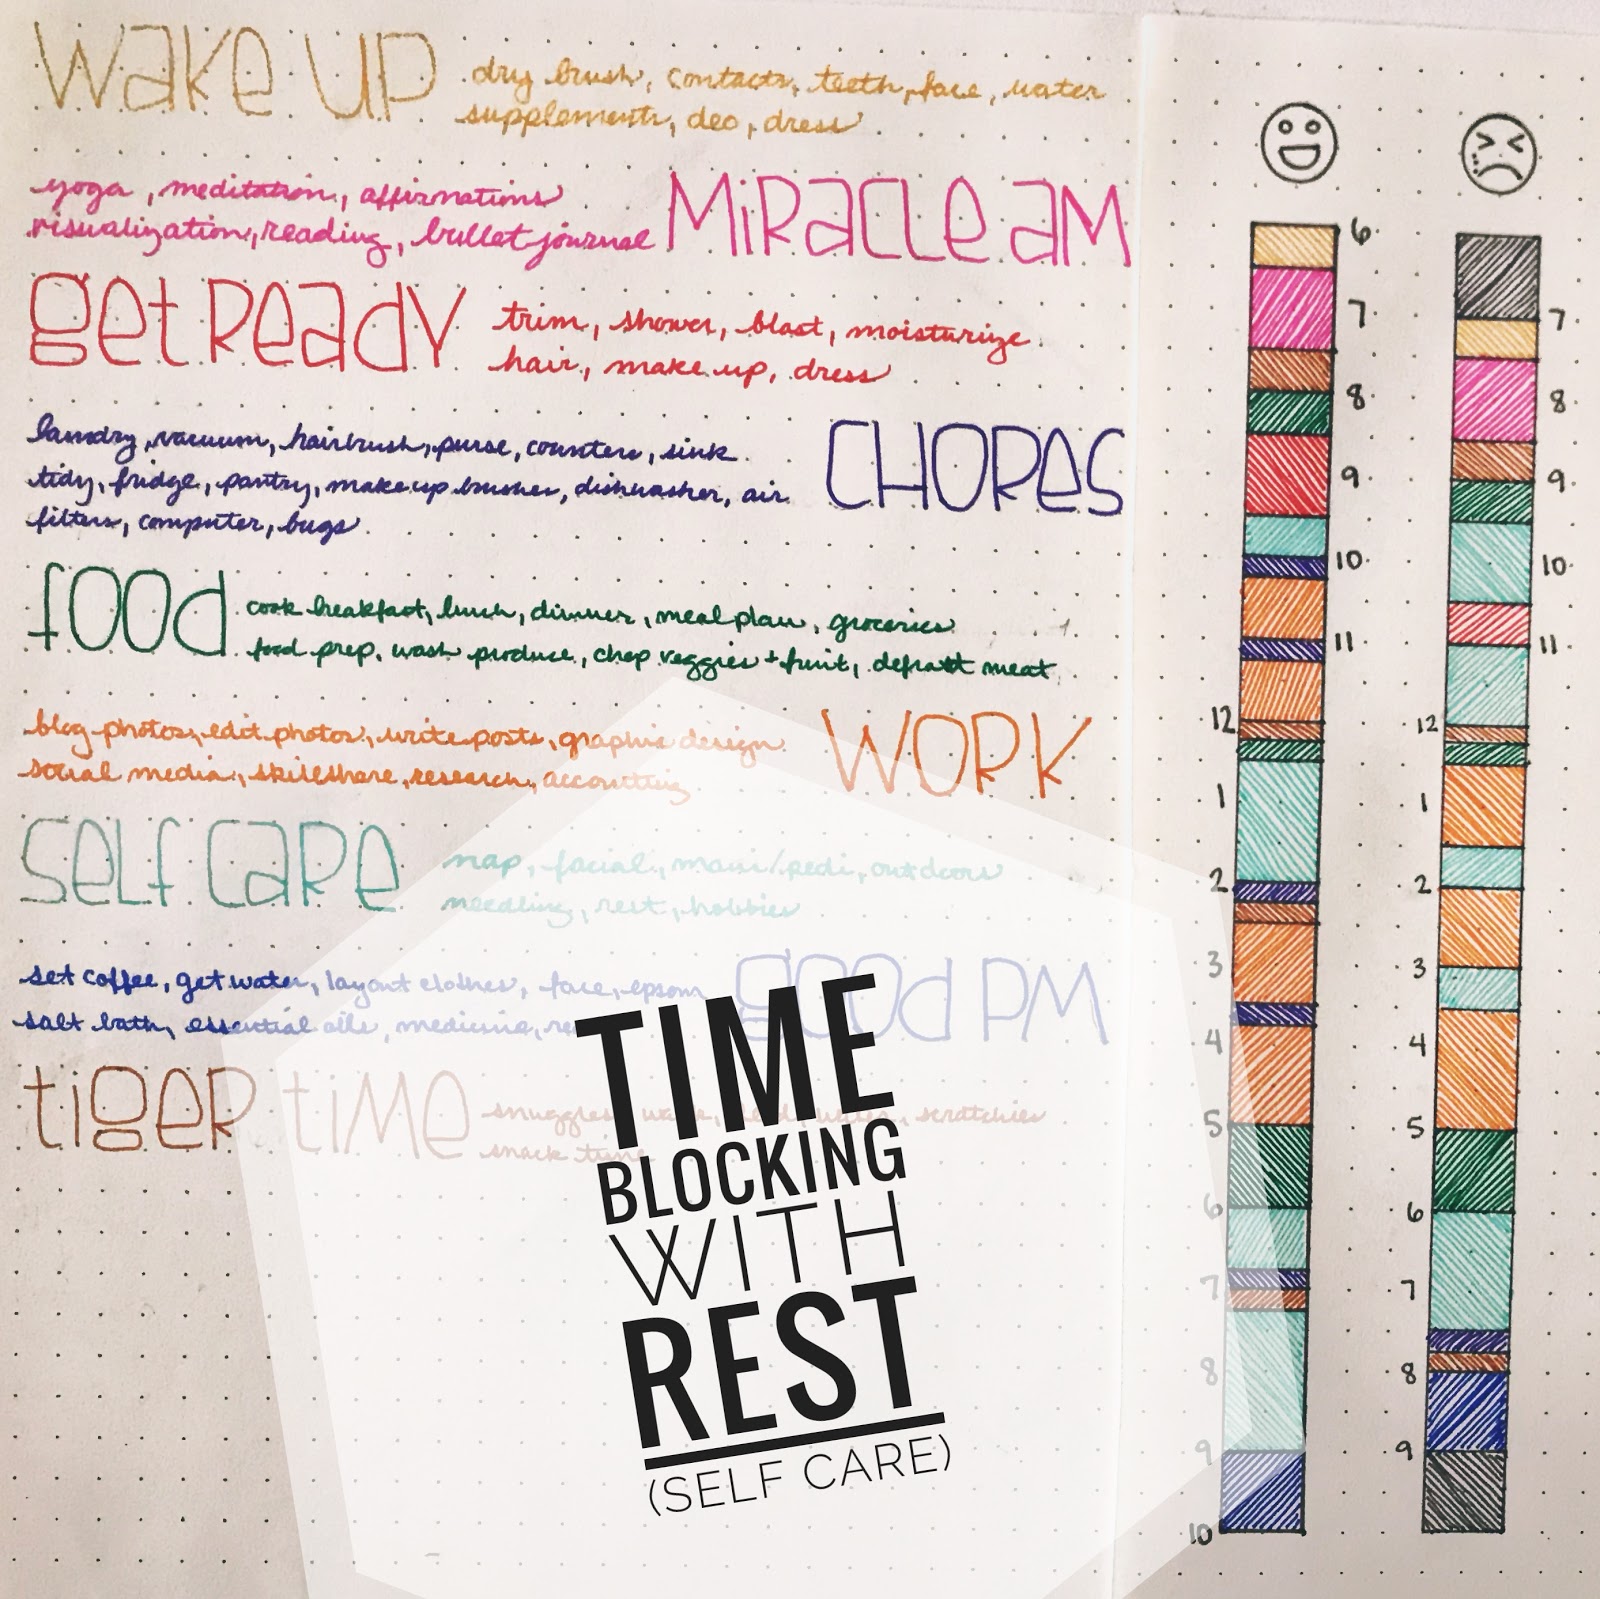 wake up
dry brush, contacts, teeth, face, water
supplements, deo, dress
yoga, meditation, affirmations
visualization, reading, bullet journal
Miracle am
get Ready
trim, shower, blast, moisturize
hair, make up, dress
laundry, vacuum, hairbrush, purse, counters, sink
tidy, fridge, pantry, make up brushes, dishwasher, air
filters, computer, bugs
CHORES
food
cook breakfast, lunch, dinner, meal plan, groceries
food prep, wash produce, chop veggies + fruit, defrost meat
blog photos, edit photos, write posts, graphic design
social media, skillshare, research, accounting
WORK
Self care
nap, facial, mani/pedi, outdoors
needling, rest, hobbies
set coffee, get water, layout clothes, face, epsom
salt bath, essential oils, medicine,
good PM
tiger time
snuggles, scratchies
snack time
TIME
BLOCKING
WITH
REST
(SELF CARE)
6
7
8
9
10
11
12
1
2
3
4
5
6
7
8
9
10
7
8
9
10
11
12
1
2
3
4
5
6
7
8
9